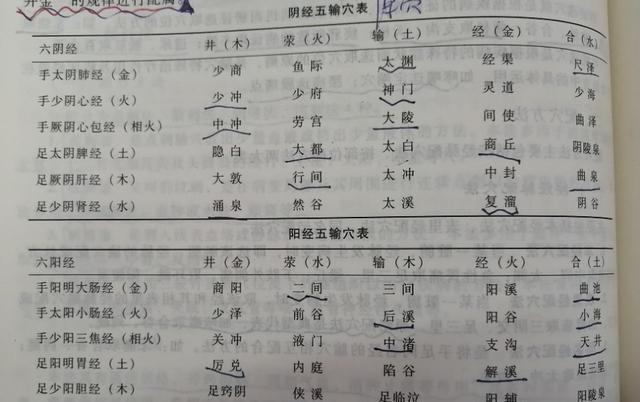 井金”的规律进行配属。
阴经五输穴表
六阴经 井（木） 荥（火） 输（土） 经（金） 合（水）
手太阴肺经（金） 少商 鱼际 太渊 经渠 尺泽
手少阴心经（火） 少冲 少府 神门 灵道 少海
手厥阴心包经（相火） 中冲 劳宫 大陵 间使 曲泽
足太阴脾经（土） 隐白 大都 太白 商丘 阴陵泉
足厥阴肝经（木） 大敦 行间 太冲 中封 曲泉
足少阴肾经（水） 涌泉 然谷 太溪 复溜 阴谷
阳经五输穴表
六阳经 井（金） 荥（水） 输（木） 经（火） 合（土）
手阳明大肠经（金） 商阳 二间 三间 阳溪 曲池
手太阳小肠经（火） 少泽 前谷 后溪 阳谷 小海
手少阳三焦经（相火） 关冲 液门 中渚 支沟 天井
足阳明胃经（土） 厉兑 内庭 陷谷 解溪 足三里
足少阳胆经（木） 足窍阴 侠溪 足临泣 阳辅 阳陵泉